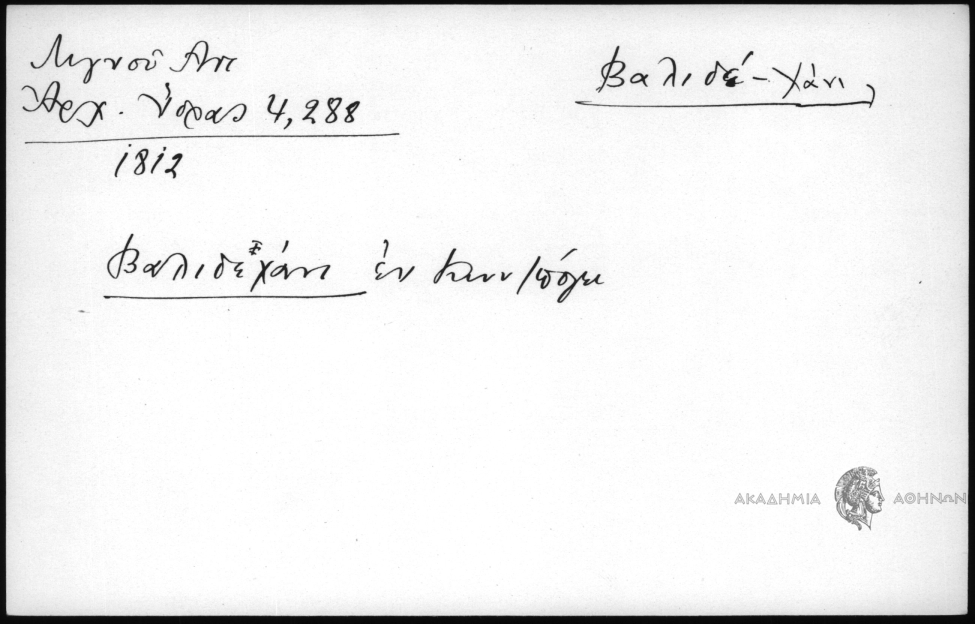 Λιγνοῦ Αντ
Ἀρχ. Ὕδρας 4,288
1812
Βαλιδέ-χάνι,
Βαλιδεχάνι ἐν Κων/πόλει
ΑΚΑΔΗΜΙΑ ΑΘΗΝΩΝ